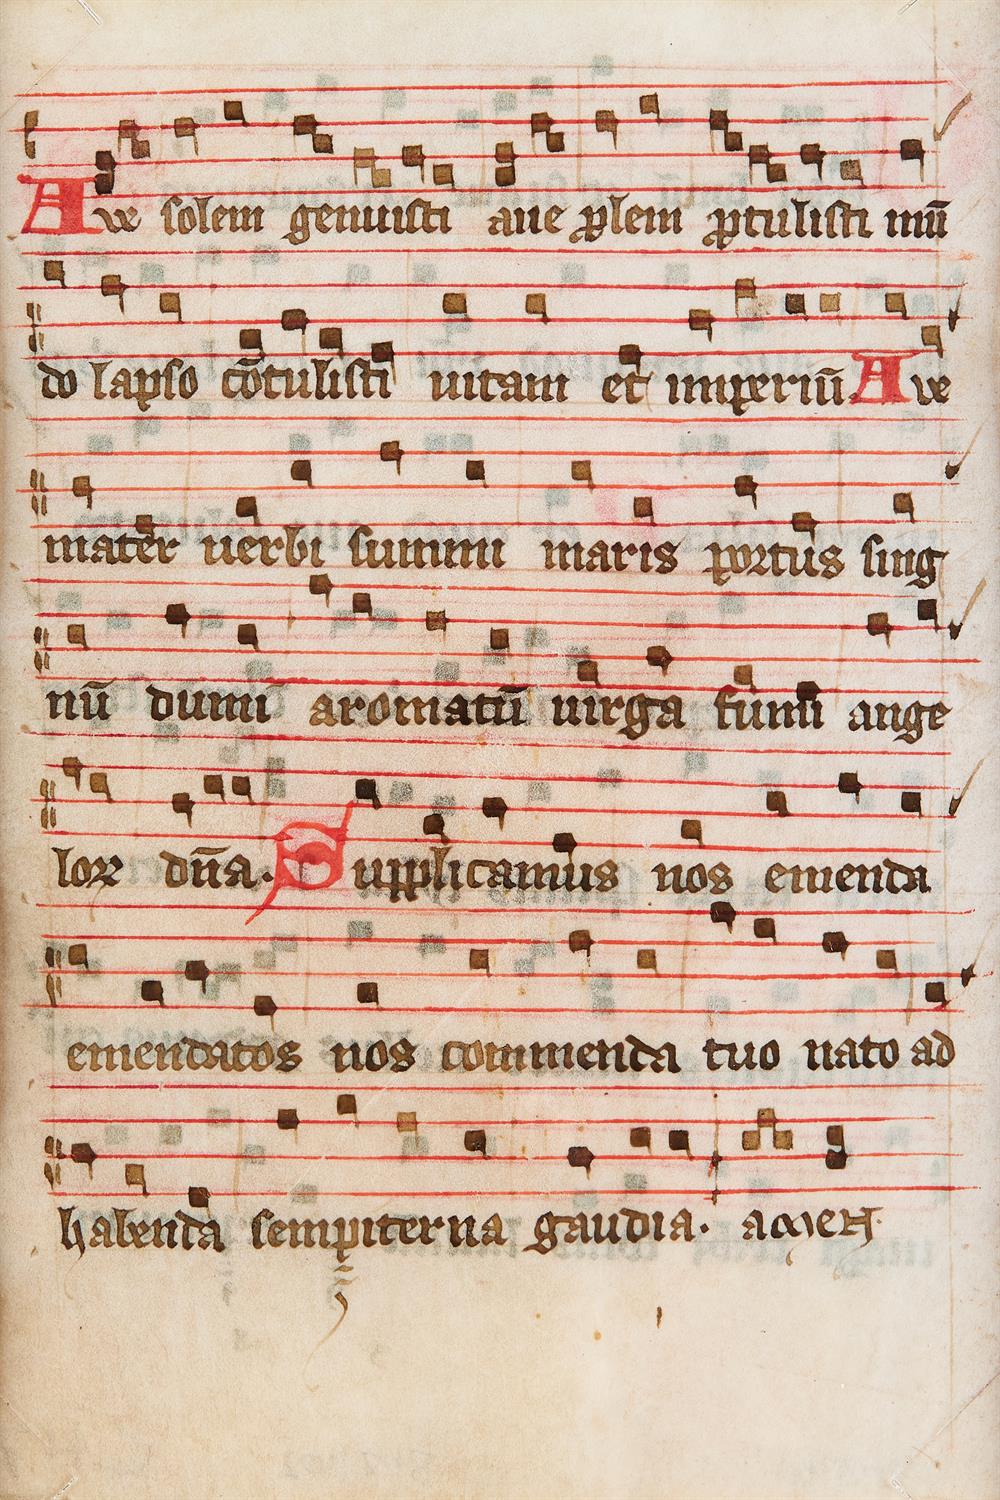 Ave solem genuisti aue ꝓlem ꝓtulisti mū
do lapso cōtulisti uitam et imperiū Ave
mater uerbi summi maris portus sing
nū dumi aromatū uirga fumi ange
loꝝ dn̄a. Supplicamus nos emenda
emendatos nos commenda tuo nato ad
habenda sempiterna gaudia. amen.